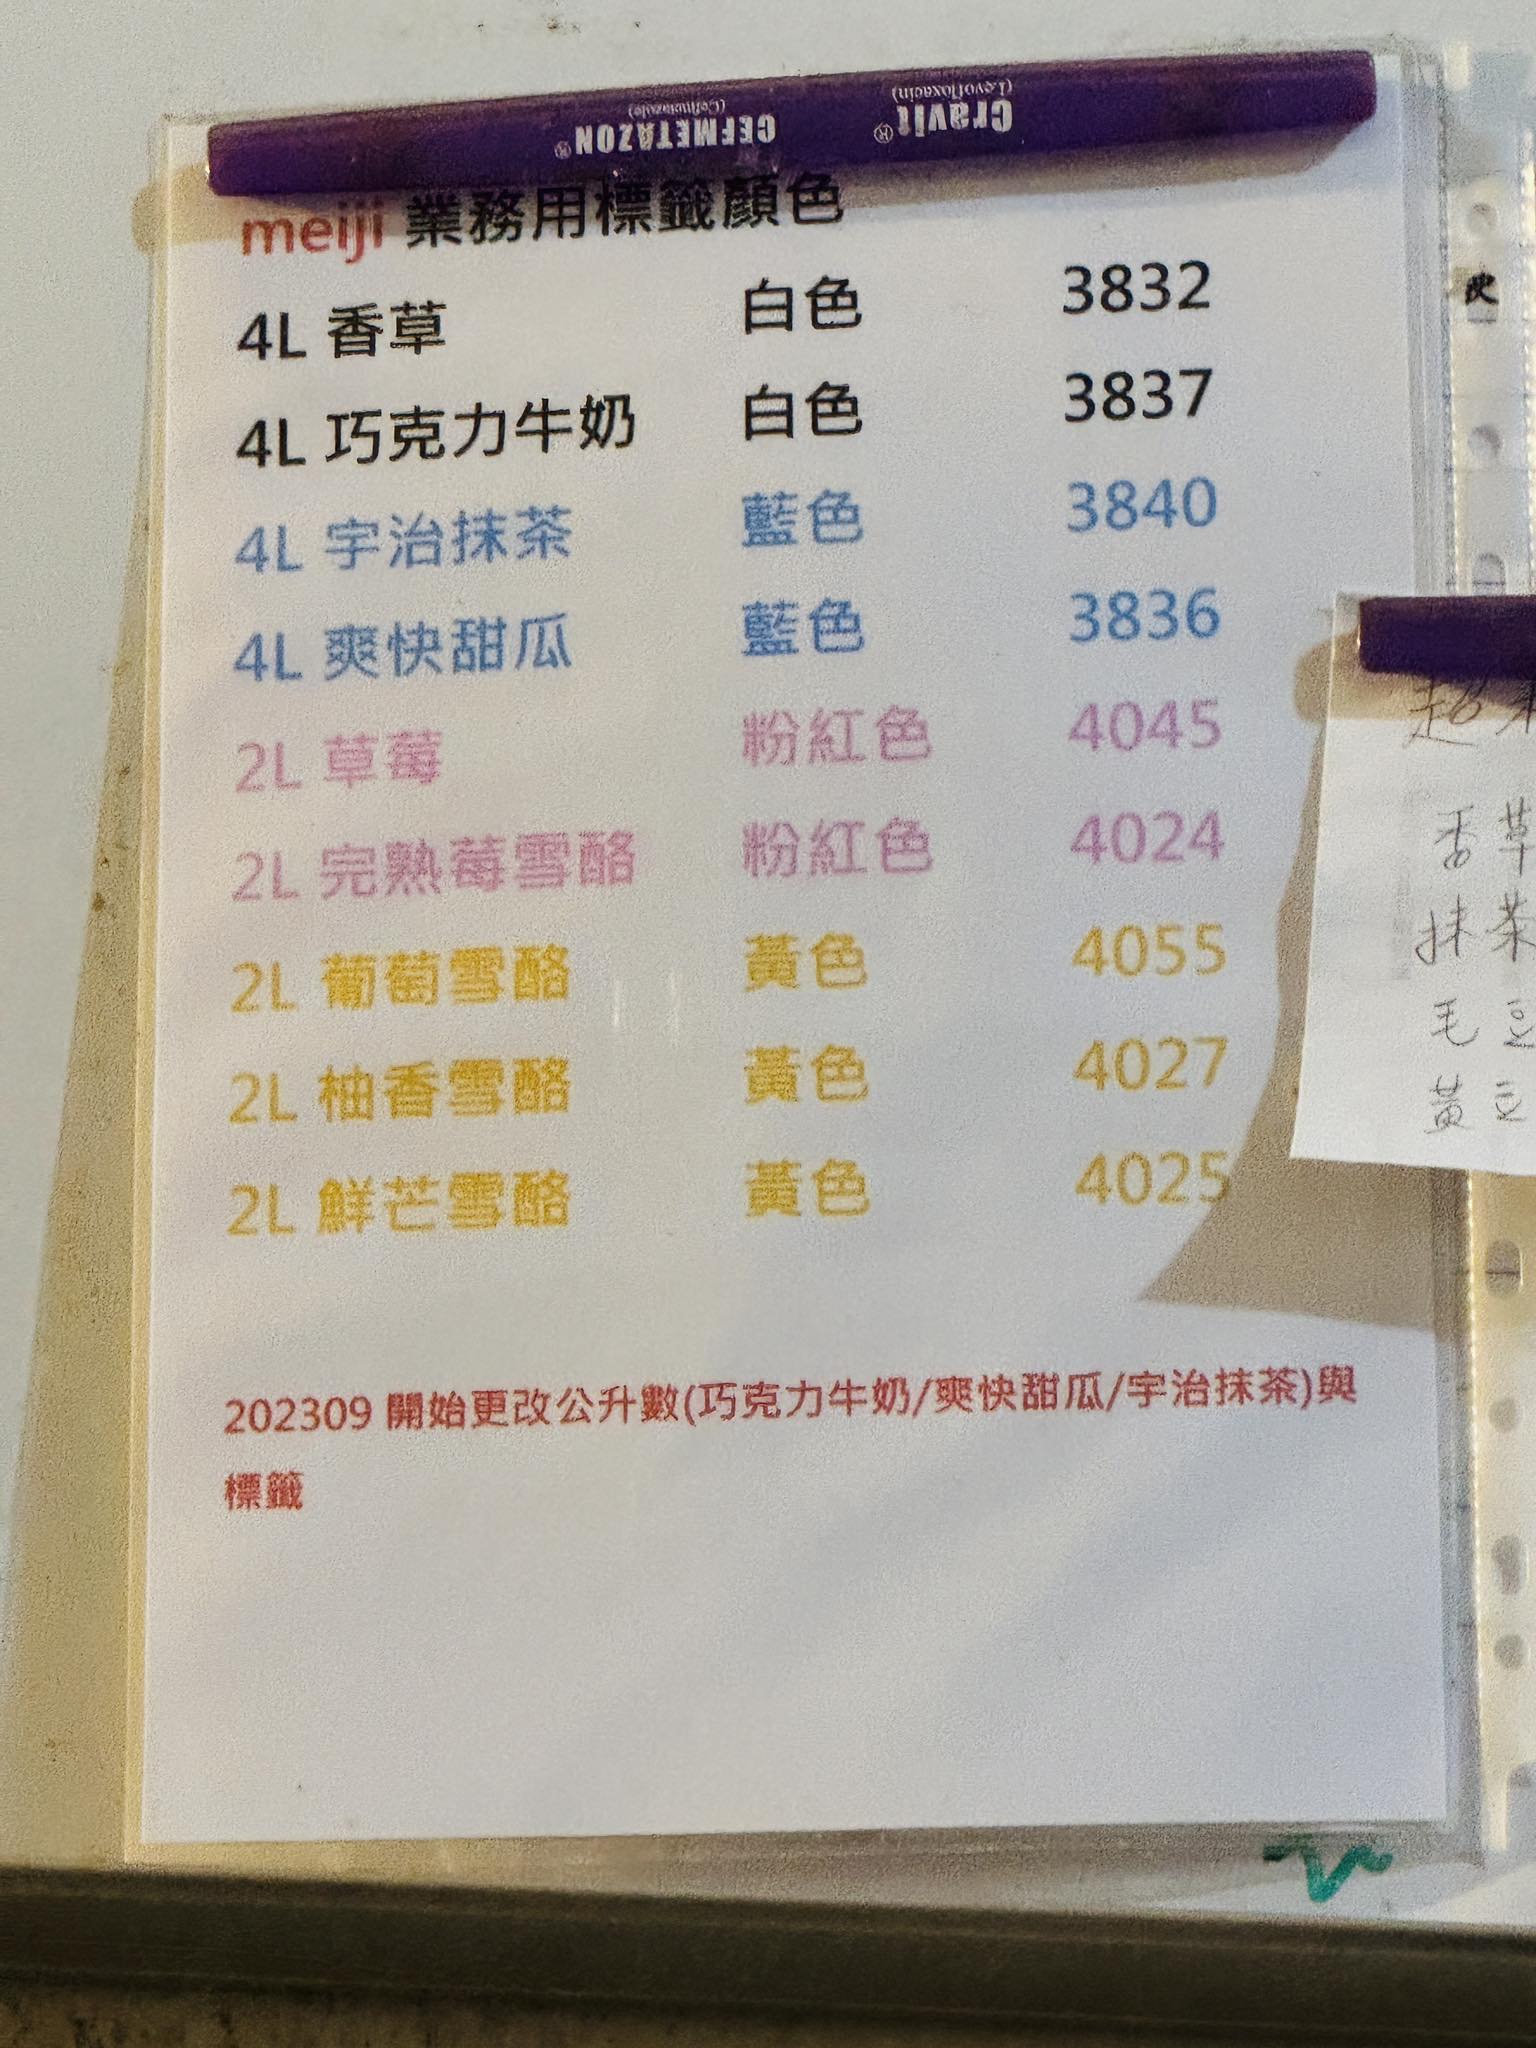 Cravit®
(Levofloxacin)
CEFMETAZON®
(Cefmetazole)
meiji 業務用標籤顏色
4L 香草 白色 3832
4L 巧克力牛奶 白色 3837
4L 宇治抹茶 藍色 3840
4L 爽快甜瓜 藍色 3836
2L 草莓 粉紅色 4045
2L 完熟莓雪酪 粉紅色 4024
2L 葡萄雪酪 黃色 4055
2L 柚香雪酪 黃色 4027
2L 鮮芒雪酪 黃色 4025
202309 開始更改公升數(巧克力牛奶/爽快甜瓜/宇治抹茶)與
標籤
香草
抹茶
毛豆
黃豆